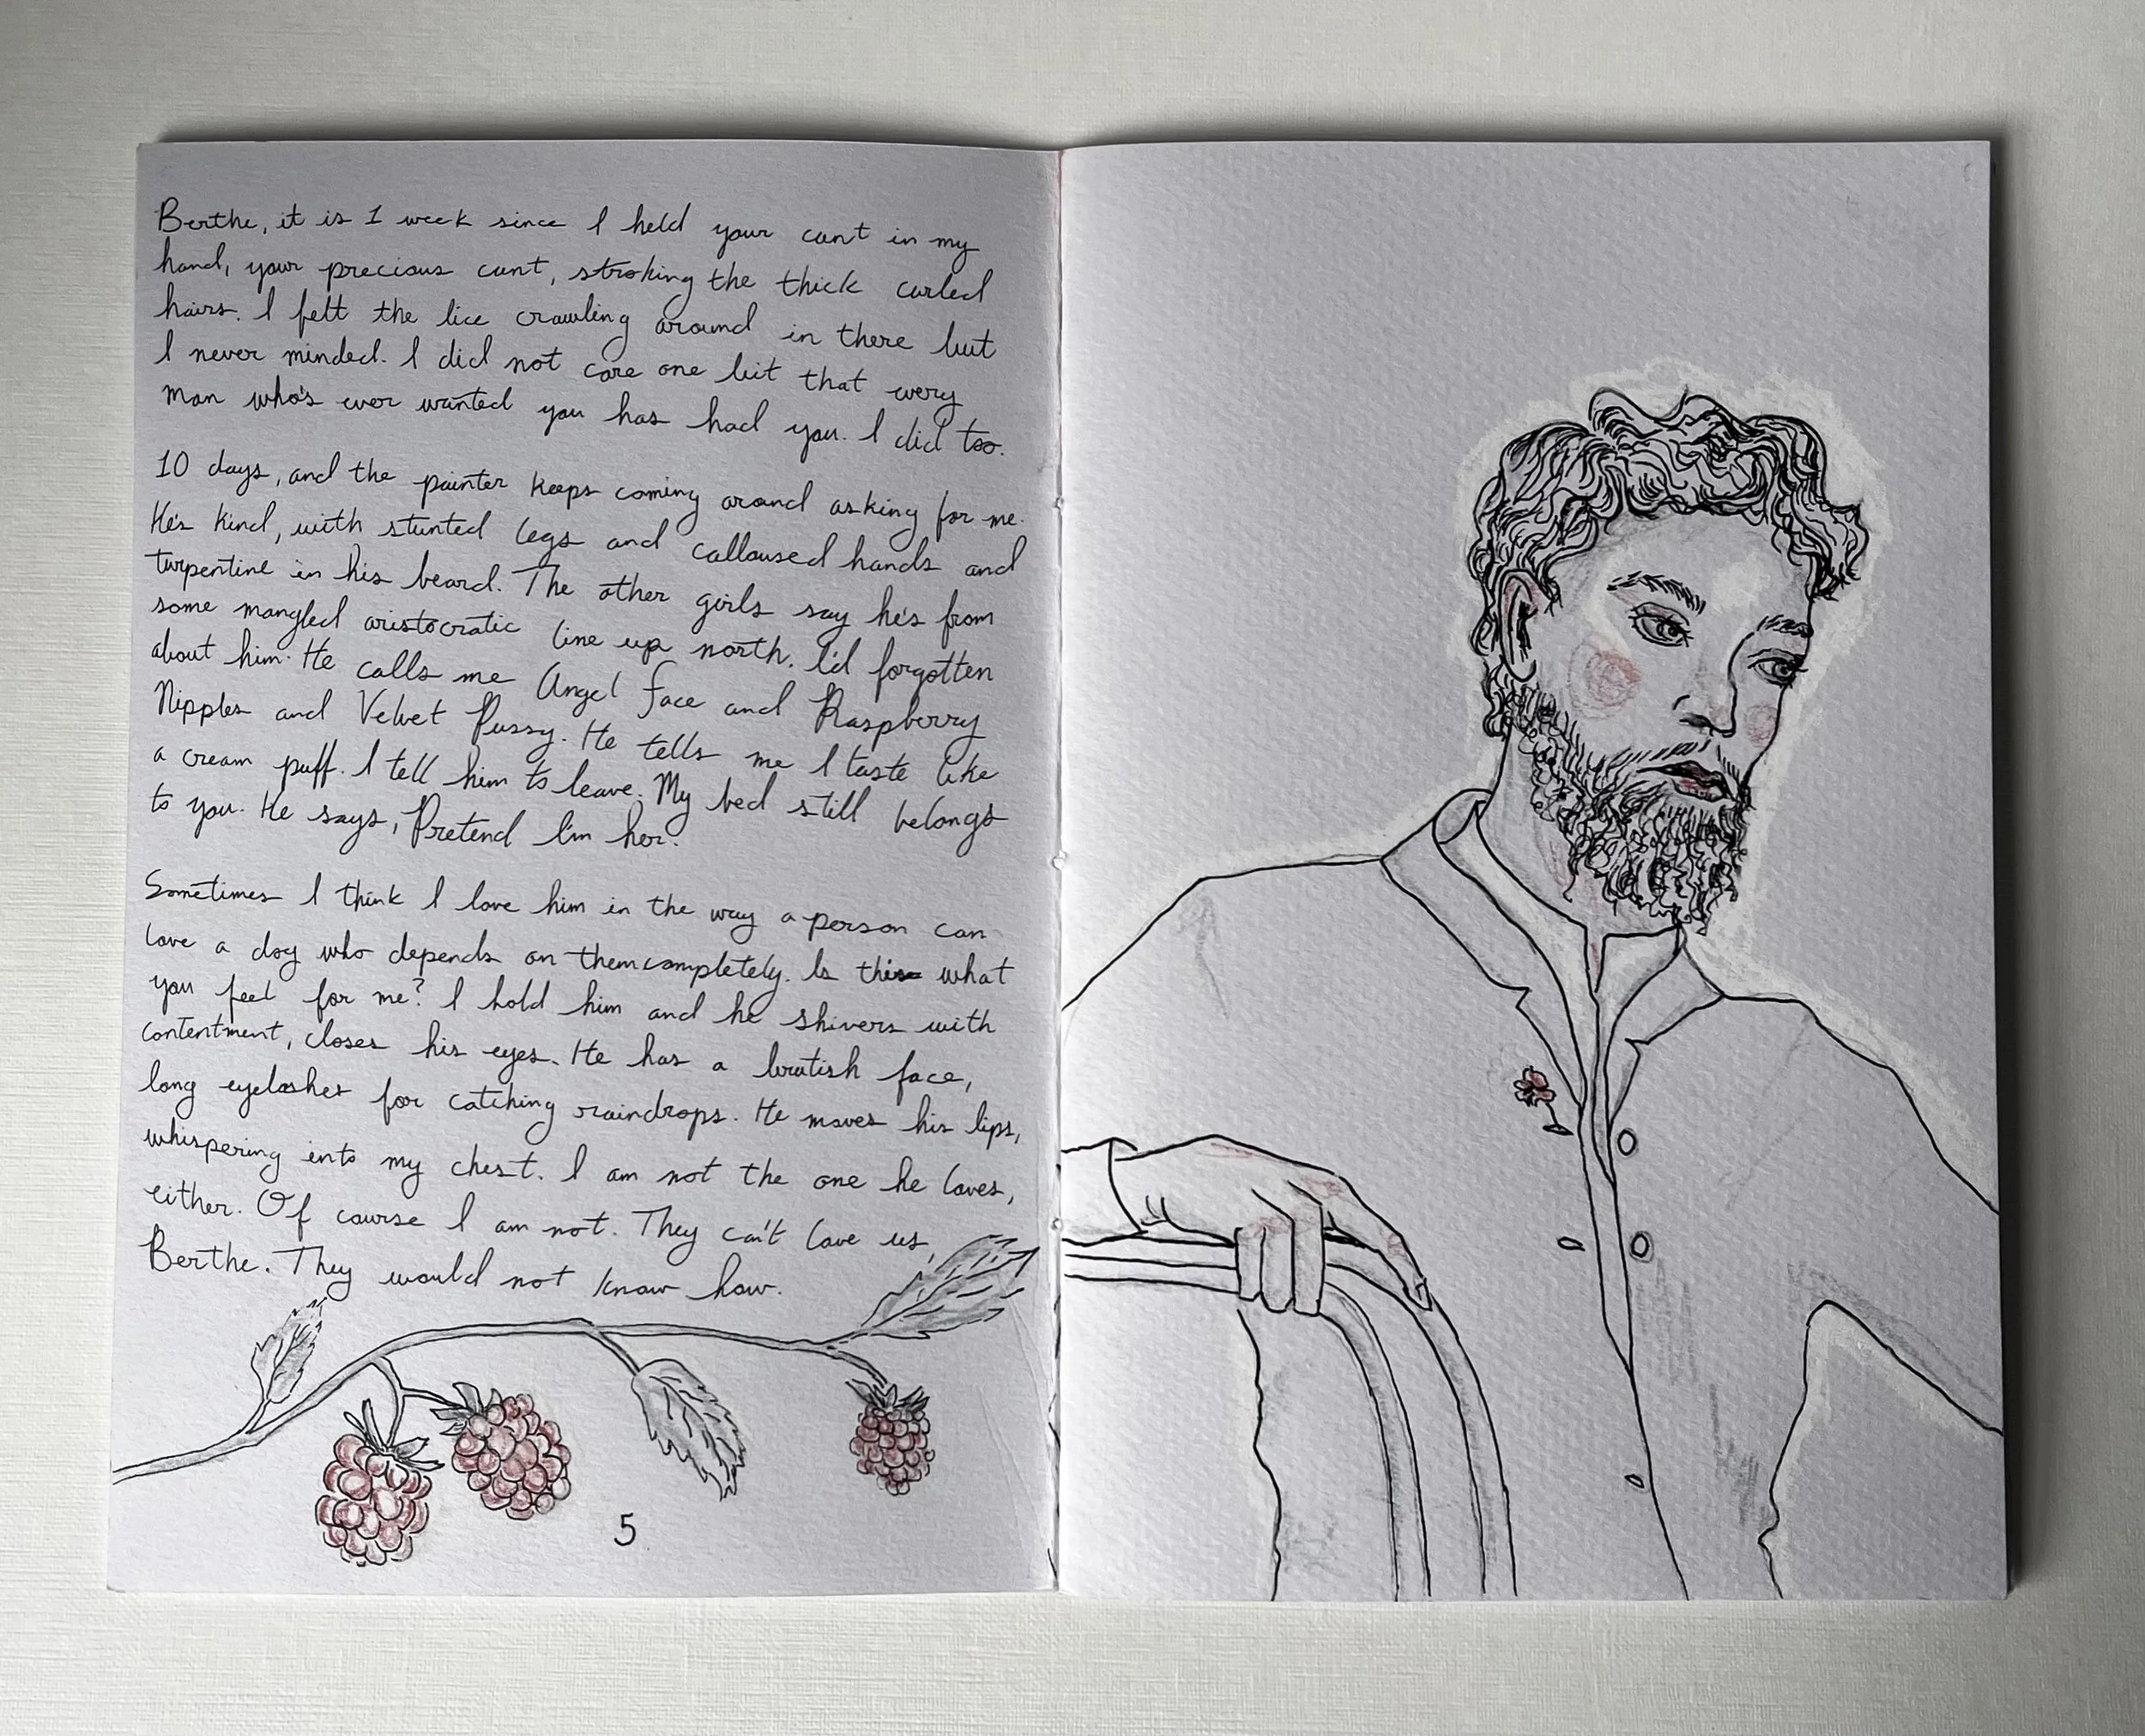 Berthe, it is 1 week since I held your cunt in my
hand, your precious cunt, stroking the thick curled
hairs. I felt the lice crawling around in there but
I never minded. I did not care one bit that every
man who's ever wanted you has had you. I did too.
10 days, and the painter keeps coming around asking for me.
He's kind, with stunted legs and calloused hands and
turpentine in his beard. The other girls say he's from
some mangled aristocratic line up north. I'd forgotten
about him. He calls me Angel Face and Raspberry
Nipples and Velvet Pussy. He tells me I taste like
a cream puff. I tell him to leave. My bed still belongs
to you. He says, Pretend I'm her.
Sometimes I think I love him in the way a person can
love a dog who depends on them completely. Is this what
you feel for me? I hold him and he shivers with
contentment, closes his eyes. He has a brutish face,
long eyelashes for catching raindrops. He moves his lips,
whispering into my chest. I am not the one he loves,
either. Of course I am not. They can't love us,
Berthe. They would not know how.
5